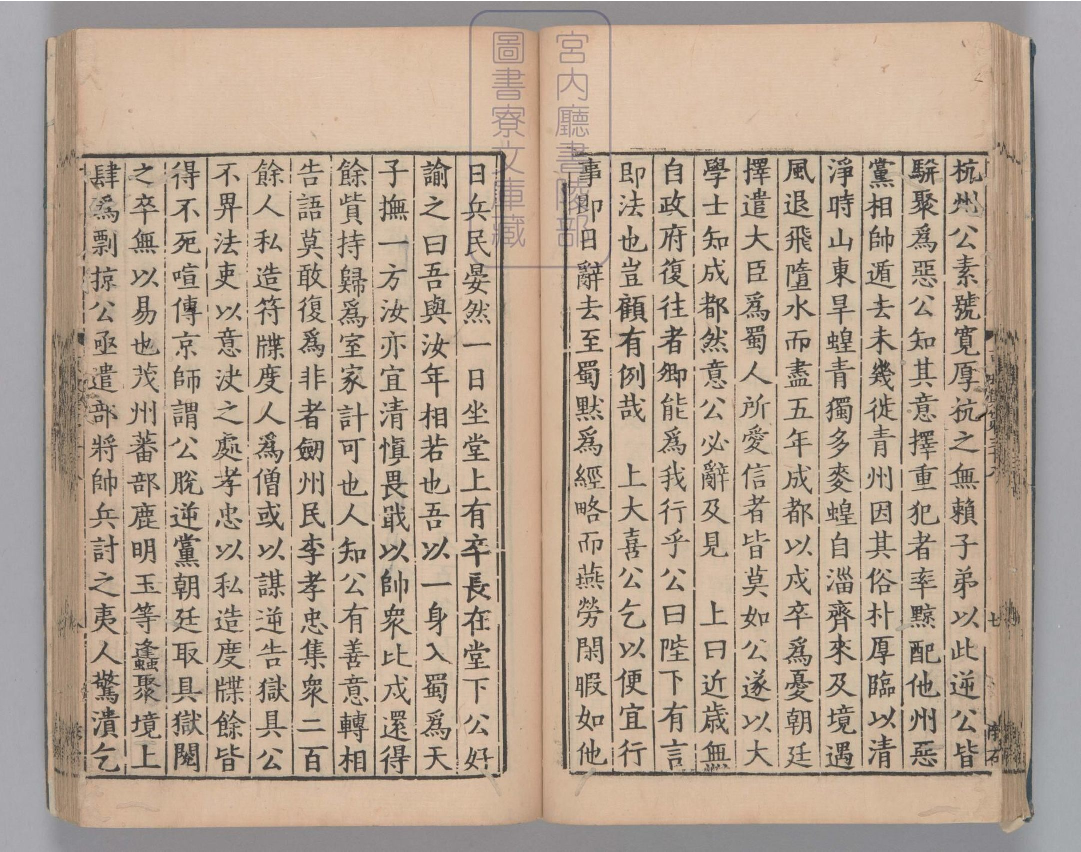 杭州公素號寬厚杭之無賴子弟以此逆公皆
駢聚爲惡公知其意擇重犯者率黥配他州惡
黨相帥遁去未幾徙青州因其俗朴厚臨以清
淨時山東旱蝗青獨多麥蝗自淄齊來及境遇
風退飛墮水而盡五年成都以戍卒爲憂朝廷
擇遣大臣爲蜀人所愛信者皆莫如公遂以大
學士知成都然意公必辭及見　上曰近歲無
自政府復往者卿能爲我行乎公曰陛下有言
即法也豈顧有例哉　上大喜公乞以便宜行
事即日辭去至蜀黙爲經略而燕勞閑暇如他
日兵民晏然一日坐堂上有卒長在堂下公好
諭之曰吾與汝年相若也吾以一身入蜀爲天
子撫一方汝亦宜清愼畏戢以帥衆比戍還得
餘貲持歸爲室家計可也人知公有善意轉相
告語莫敢復爲非者劒州民李孝忠集衆二百
餘人私造符牒度人爲僧或以謀逆告獄具公
不畀法吏以意决之處孝忠以私造度牒餘皆
得不死喧傳京師謂公脫逆黨朝廷取具獄閱
之卒無以易也茂州蕃部鹿明玉等蠭聚境上
肆爲剽掠公亟遣部將帥兵討之夷人驚潰乞
七
宮内廳書陵部
圖書寮文庫藏